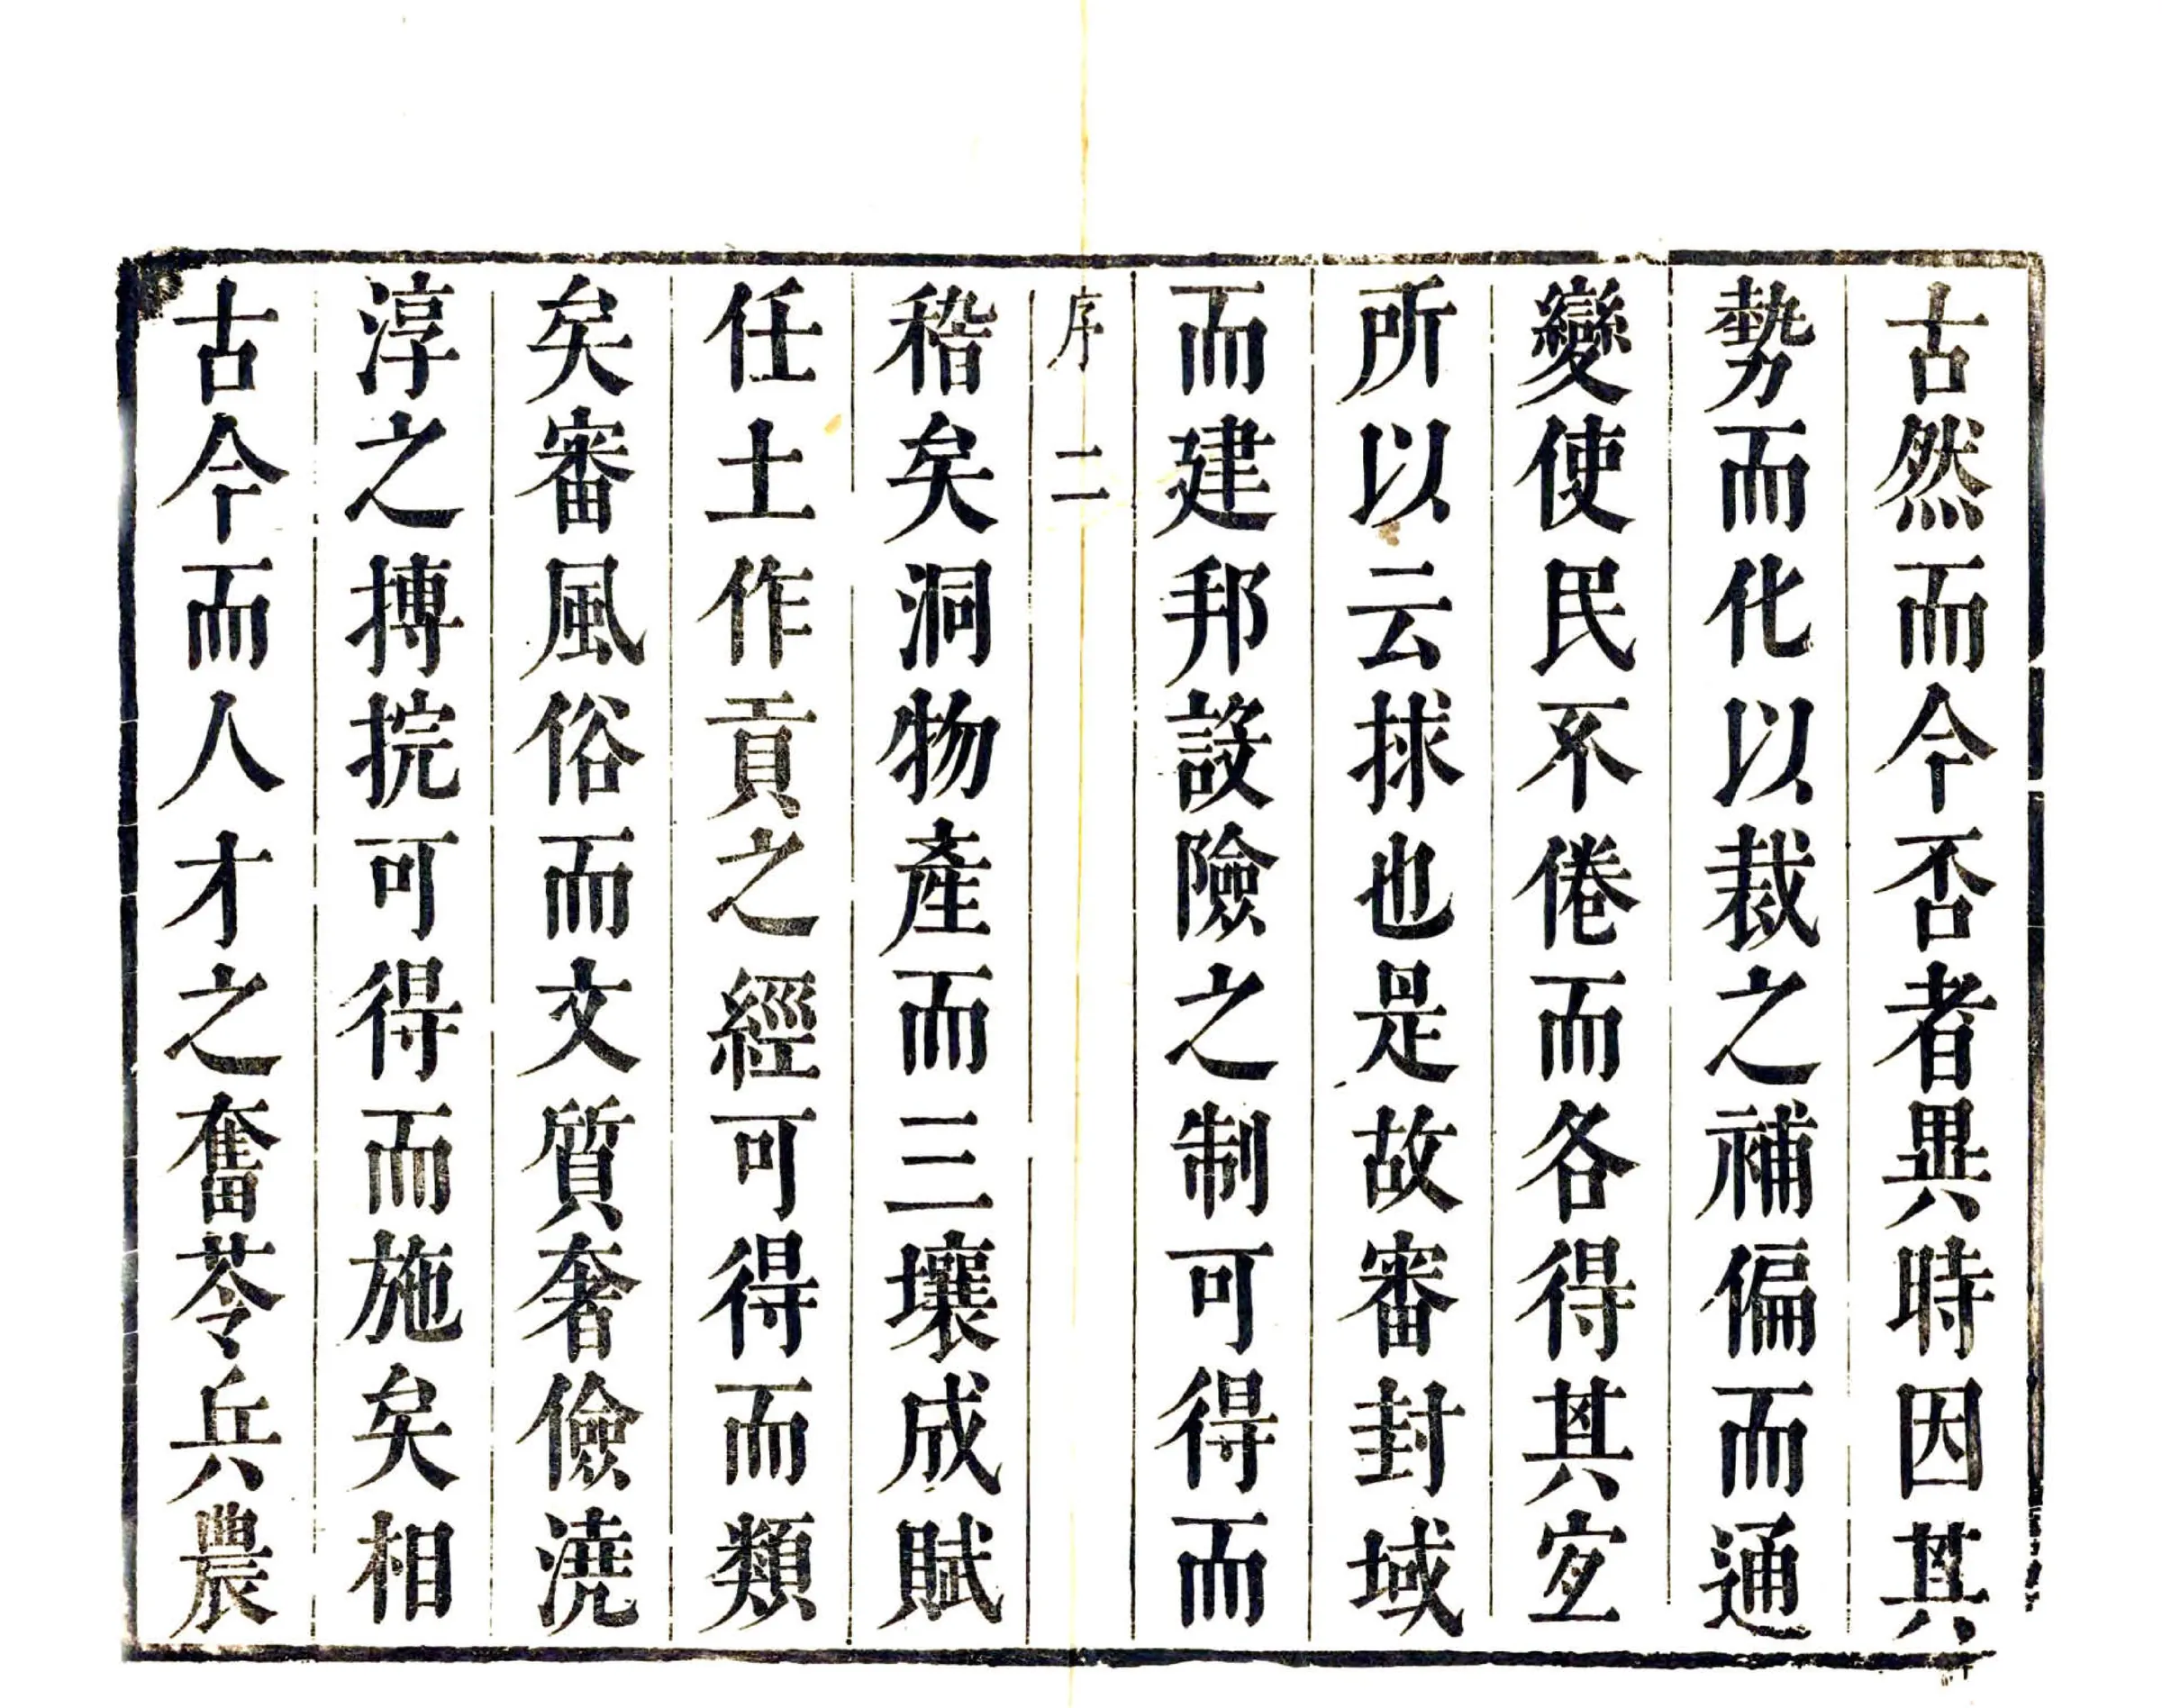 古然而今否者異時因其
勢而化以裁之補偏而通
變使民不倦而各得其宐
所以云捄也是故審封域
而建邦設險之制可得而
序 二
稽矣洞物產而三壤成賦
任土作貢之經可得而類
矣審風俗而文質奢儉澆
淳之搏捖可得而施矣相
古今而人才之奮苓兵農